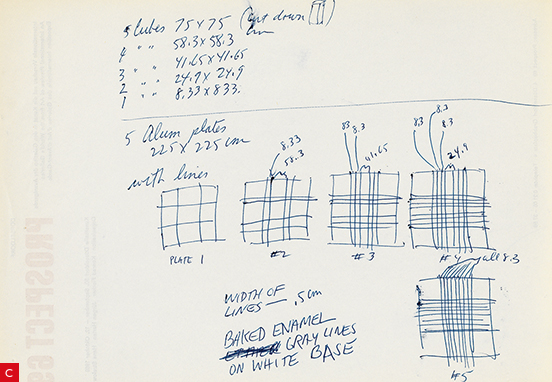 5 Cubes 75 x 75 (cut down
4 " " 58.3 x 58.3 cm
3 " " 41.65 x 41.65
2 " " 24.9 x 24.9
1 " " 8.33 x 833.
5 Alum plates
225 x 225 cm
with lines
8.33
58.3
83 8.3
41.65
8.3
8.3 8.3
24.9
PLATE 1
#2
#3
#4 all 8.3
#5
WIDTH OF
LINES — .5cm
BAKED ENAMEL
GRAY LINES
ON WHITE BASE
PROSPECT 69
C